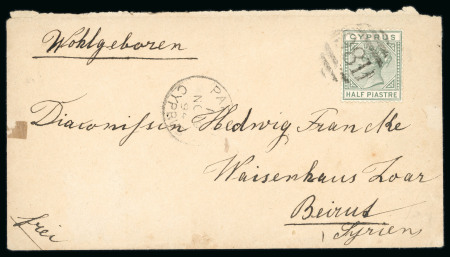 Wohlgeboren
CYPRUS
HALF PIASTRE
CYPRUS
Diaconissen Hedwig Francke
Waisenhaus Zoar
Beirut
Syrien
frei